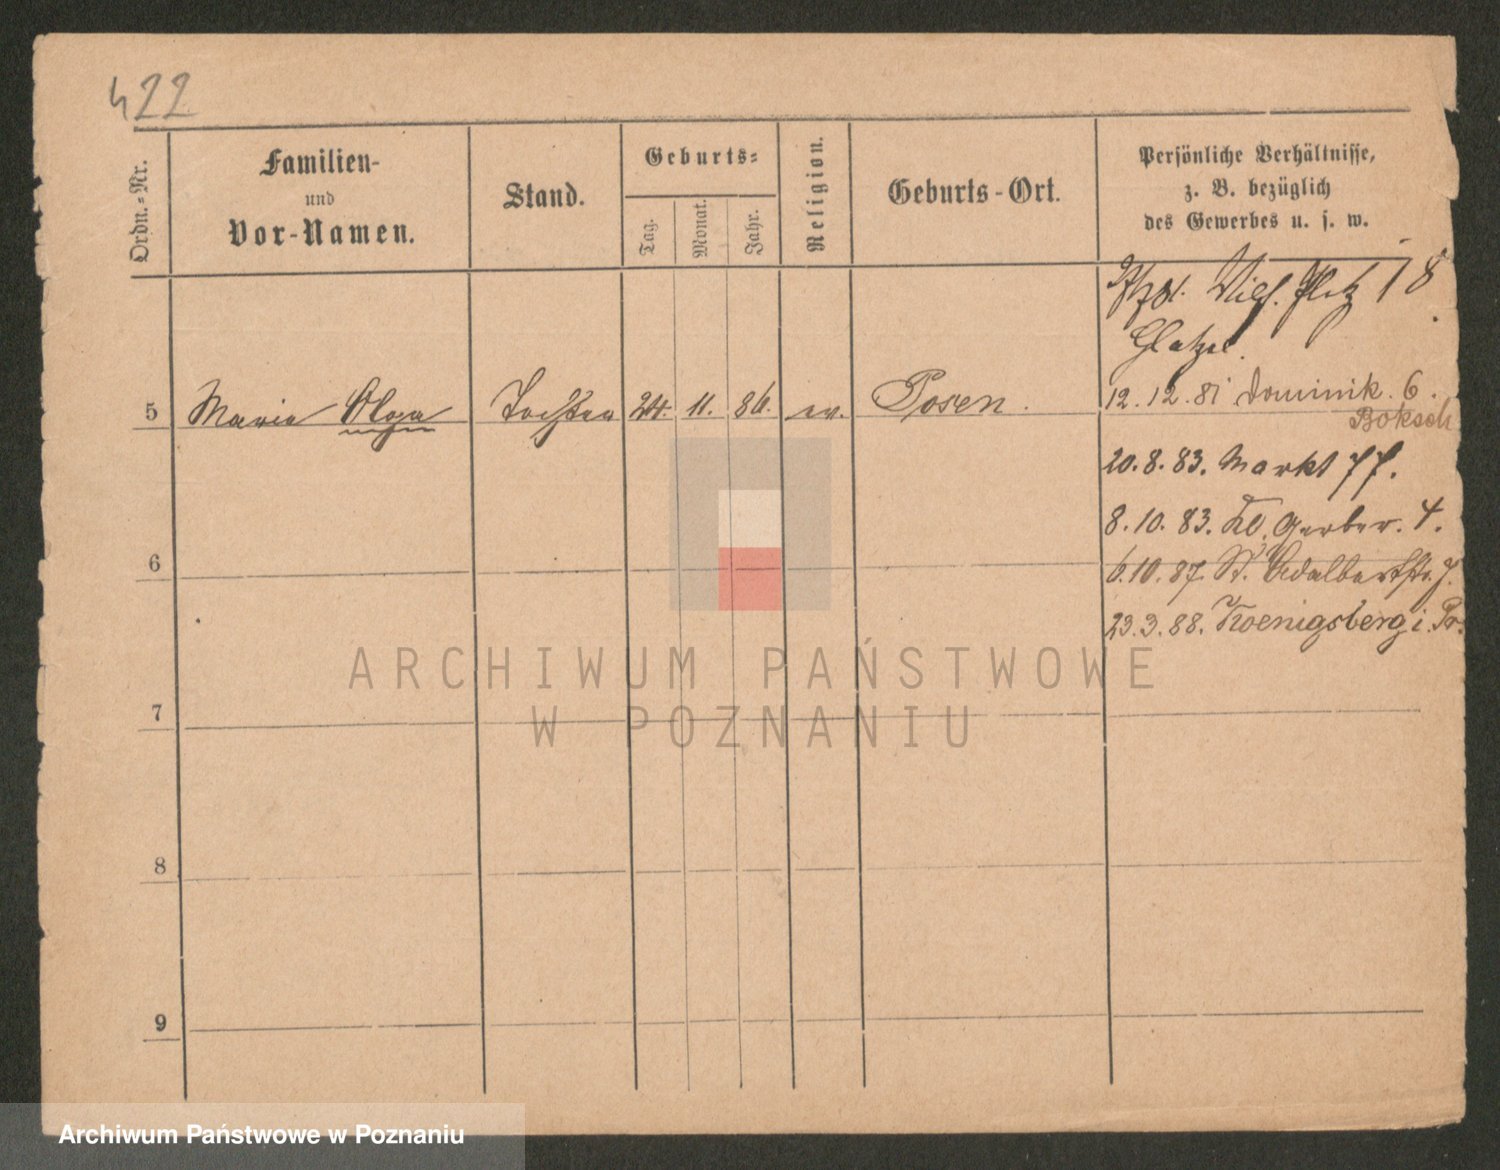 422
Ordn.-Nr.
Familien-
und
Vor-Namen.
Stand.
Geburts-
Tag.
Monat.
Jahr.
Religion.
Geburts-Ort.
Persönliche Verhältnisse,
z. B. bezüglich
des Gewerbes u. s. w.
Wilh. Platz 18
5 Marie Olga Tochter 24. 11. 86. ev. Posen.
12. 12. 81 Dominik. 6.
Boksch
20. 8. 83. Markt 77.
8. 10. 83. Kl. Gerber. 4.
6. 10. 87. St. Adalbertstr. 7.
23. 3. 88. Koenigsberg i. Pr.
6
7
8
9
ARCHIWUM PAŃSTWOWE
W POZNANIU
Archiwum Państwowe w Poznaniu